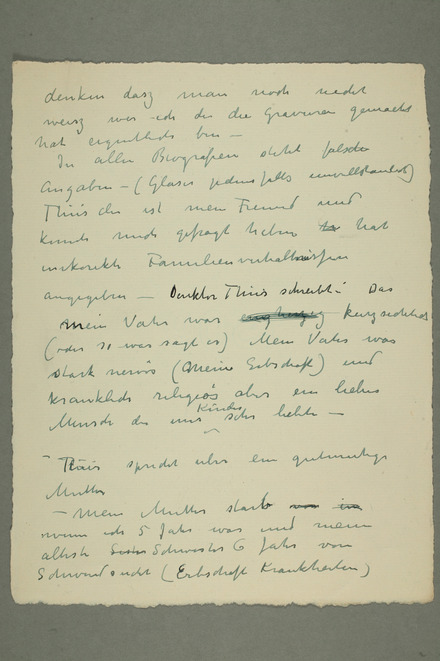 denken dasz man noch nicht
weisz wer ich der die Gravuren gemacht
hat eigentlich bin —
In allen Biografien steht falsche
Angaben — (Glaser jedenfalls unvollständig)
Thiis der ist mein Freund und
kunde mich gefragt haben hat
unkorrekte Familienverhältnissen
angegeben — Direktor Thiis schreibt: Das
mein Vater war kurzsichtig
(oder so was sagt er) Mein Vater was
stark nervös (Meine Erbschaft) und
kranklich religiös aber ein liebes
Mensch der uns Kinder sehr liebte —
Thiis spricht uber ein gutmutige
Mutter
— Mein Mutter starb
wenn ich 5 Jahr war und meine
älteste Schwester 6 Jahr von
Schwindsucht (Erbschaft Krankheiten)